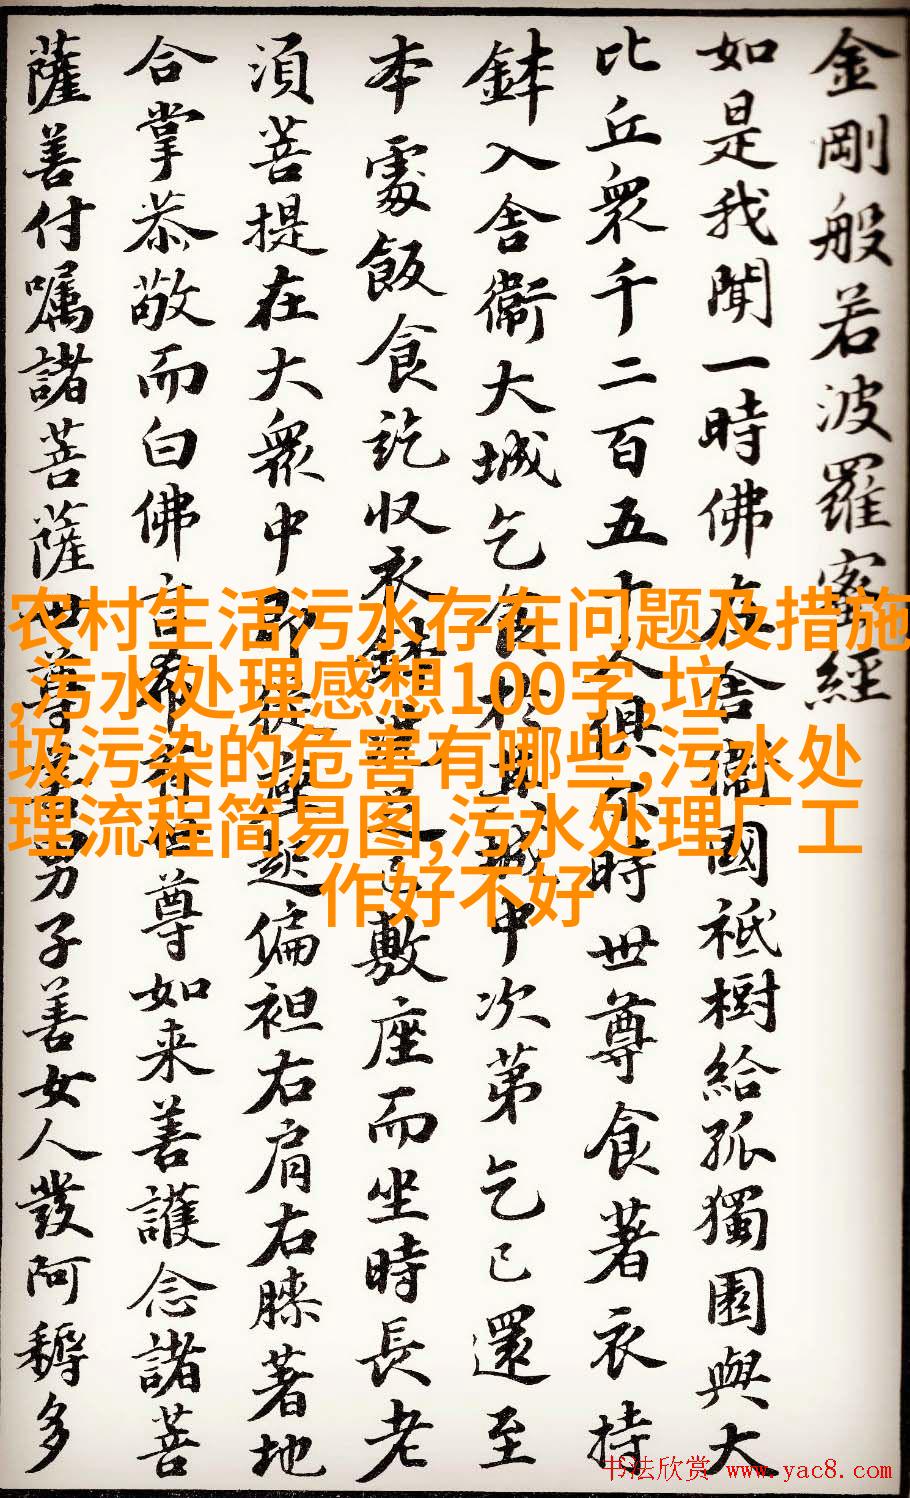 金剛般若波羅蜜經
如是我聞一時佛在舍衞國祇樹給孤獨園與大
比丘衆千二百五十人俱尔時世尊食著衣持
鉢入舍衞大城乞食於其城中次第乞已還至
本處飯食訖収衣鉢洗足已敷座而坐時長老
湏菩提在大衆中即從座起偏袒右肩右膝著地
合掌恭敬而白佛言希有世尊如来善護念諸菩
薩善付囑諸菩薩世尊善男子善女人發阿耨多
农村生活污水存在问题及措施
,污水处理感想100字,垃
圾污染的危害有哪些,污水处
理流程简易图,污水处理厂工
作好不好
书法欣赏 www.yac8.com